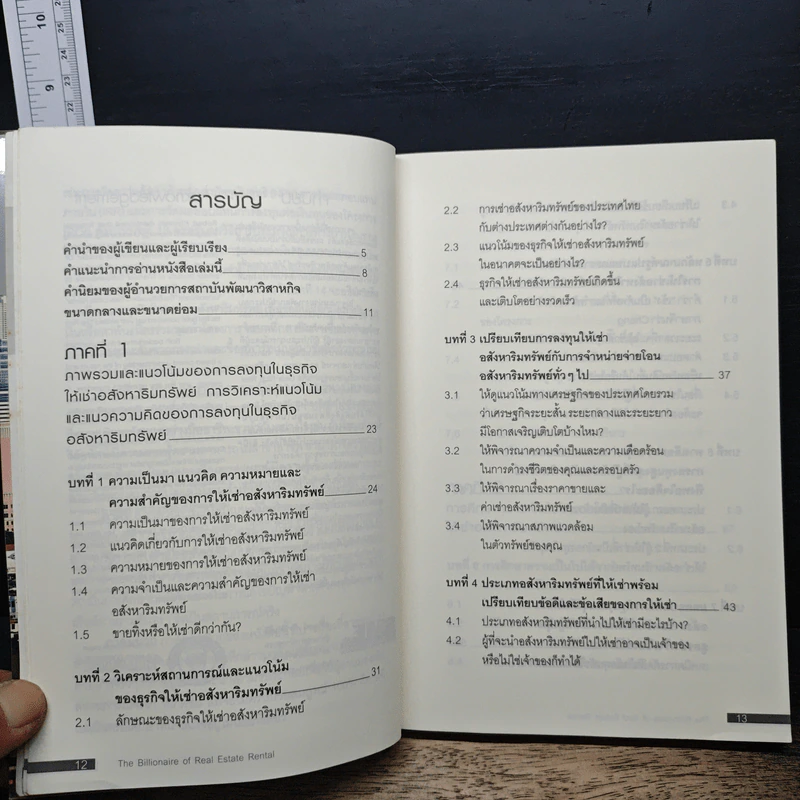 10
9
25
24
23
22
สารบัญ
คำนำของผู้เขียนและผู้เรียบเรียง 5
คำแนะนำการอ่านหนังสือเล่มนี้ 8
คำนิยมของผู้อำนวยการสถาบันพัฒนาวิสาหกิจ
ขนาดกลางและขนาดย่อม 11
ภาคที่ 1
ภาพรวมและแนวโน้มของการลงทุนในธุรกิจ
ให้เช่าอสังหาริมทรัพย์ การวิเคราะห์แนวโน้ม
และแนวความคิดของการลงทุนในธุรกิจ
อสังหาริมทรัพย์ 23
บทที่ 1 ความเป็นมา แนวคิด ความหมายและ
ความสำคัญของการให้เช่าอสังหาริมทรัพย์ 24
1.1 ความเป็นมาของการให้เช่าอสังหาริมทรัพย์
1.2 แนวคิดเกี่ยวกับการให้เช่าอสังหาริมทรัพย์
1.3 ความหมายของการให้เช่าอสังหาริมทรัพย์
1.4 ความจำเป็นและความสำคัญของการให้เช่า
อสังหาริมทรัพย์
1.5 ขายทิ้งหรือให้เช่าดีกว่ากัน?
บทที่ 2 วิเคราะห์สถานการณ์และแนวโน้ม
ของธุรกิจให้เช่าอสังหาริมทรัพย์ 31
2.1 ลักษณะของธุรกิจให้เช่าอสังหาริมทรัพย์
12 The Billionaire of Real Estate Rental
2.2 การเช่าอสังหาริมทรัพย์ของประเทศไทย
กับต่างประเทศต่างกันอย่างไร?
2.3 แนวโน้มของธุรกิจให้เช่าอสังหาริมทรัพย์
ในอนาคตจะเป็นอย่างไร?
2.4 ธุรกิจให้เช่าอสังหาริมทรัพย์เกิดขึ้น
และเติบโตอย่างรวดเร็ว
บทที่ 3 เปรียบเทียบการลงทุนให้เช่า
อสังหาริมทรัพย์กับการจำหน่ายจ่ายโอน
อสังหาริมทรัพย์ทั่วๆ ไป 37
3.1 ให้ดูแนวโน้มทางเศรษฐกิจของประเทศโดยรวม
ว่าเศรษฐกิจระยะสั้น ระยะกลางและระยะยาว
มีโอกาสเจริญเติบโตบ้างไหม?
3.2 ให้พิจารณาความจำเป็นและความเดือดร้อน
ในการดำรงชีวิตของคุณและครอบครัว
3.3 ให้พิจารณาเรื่องราคาขายและ
ค่าเช่าอสังหาริมทรัพย์
3.4 ให้พิจารณาสภาพแวดล้อม
ในตัวทรัพย์ของคุณ
บทที่ 4 ประเภทอสังหาริมทรัพย์ที่ให้เช่าพร้อม
เปรียบเทียบข้อดีและข้อเสียของการให้เช่า 43
4.1 ประเภทอสังหาริมทรัพย์ที่นำไปให้เช่ามีอะไรบ้าง?
4.2 ผู้ที่จะนำอสังหาริมทรัพย์ไปให้เช่าอาจเป็นเจ้าของ
หรือไม่ใช่เจ้าของก็ทำได้
13